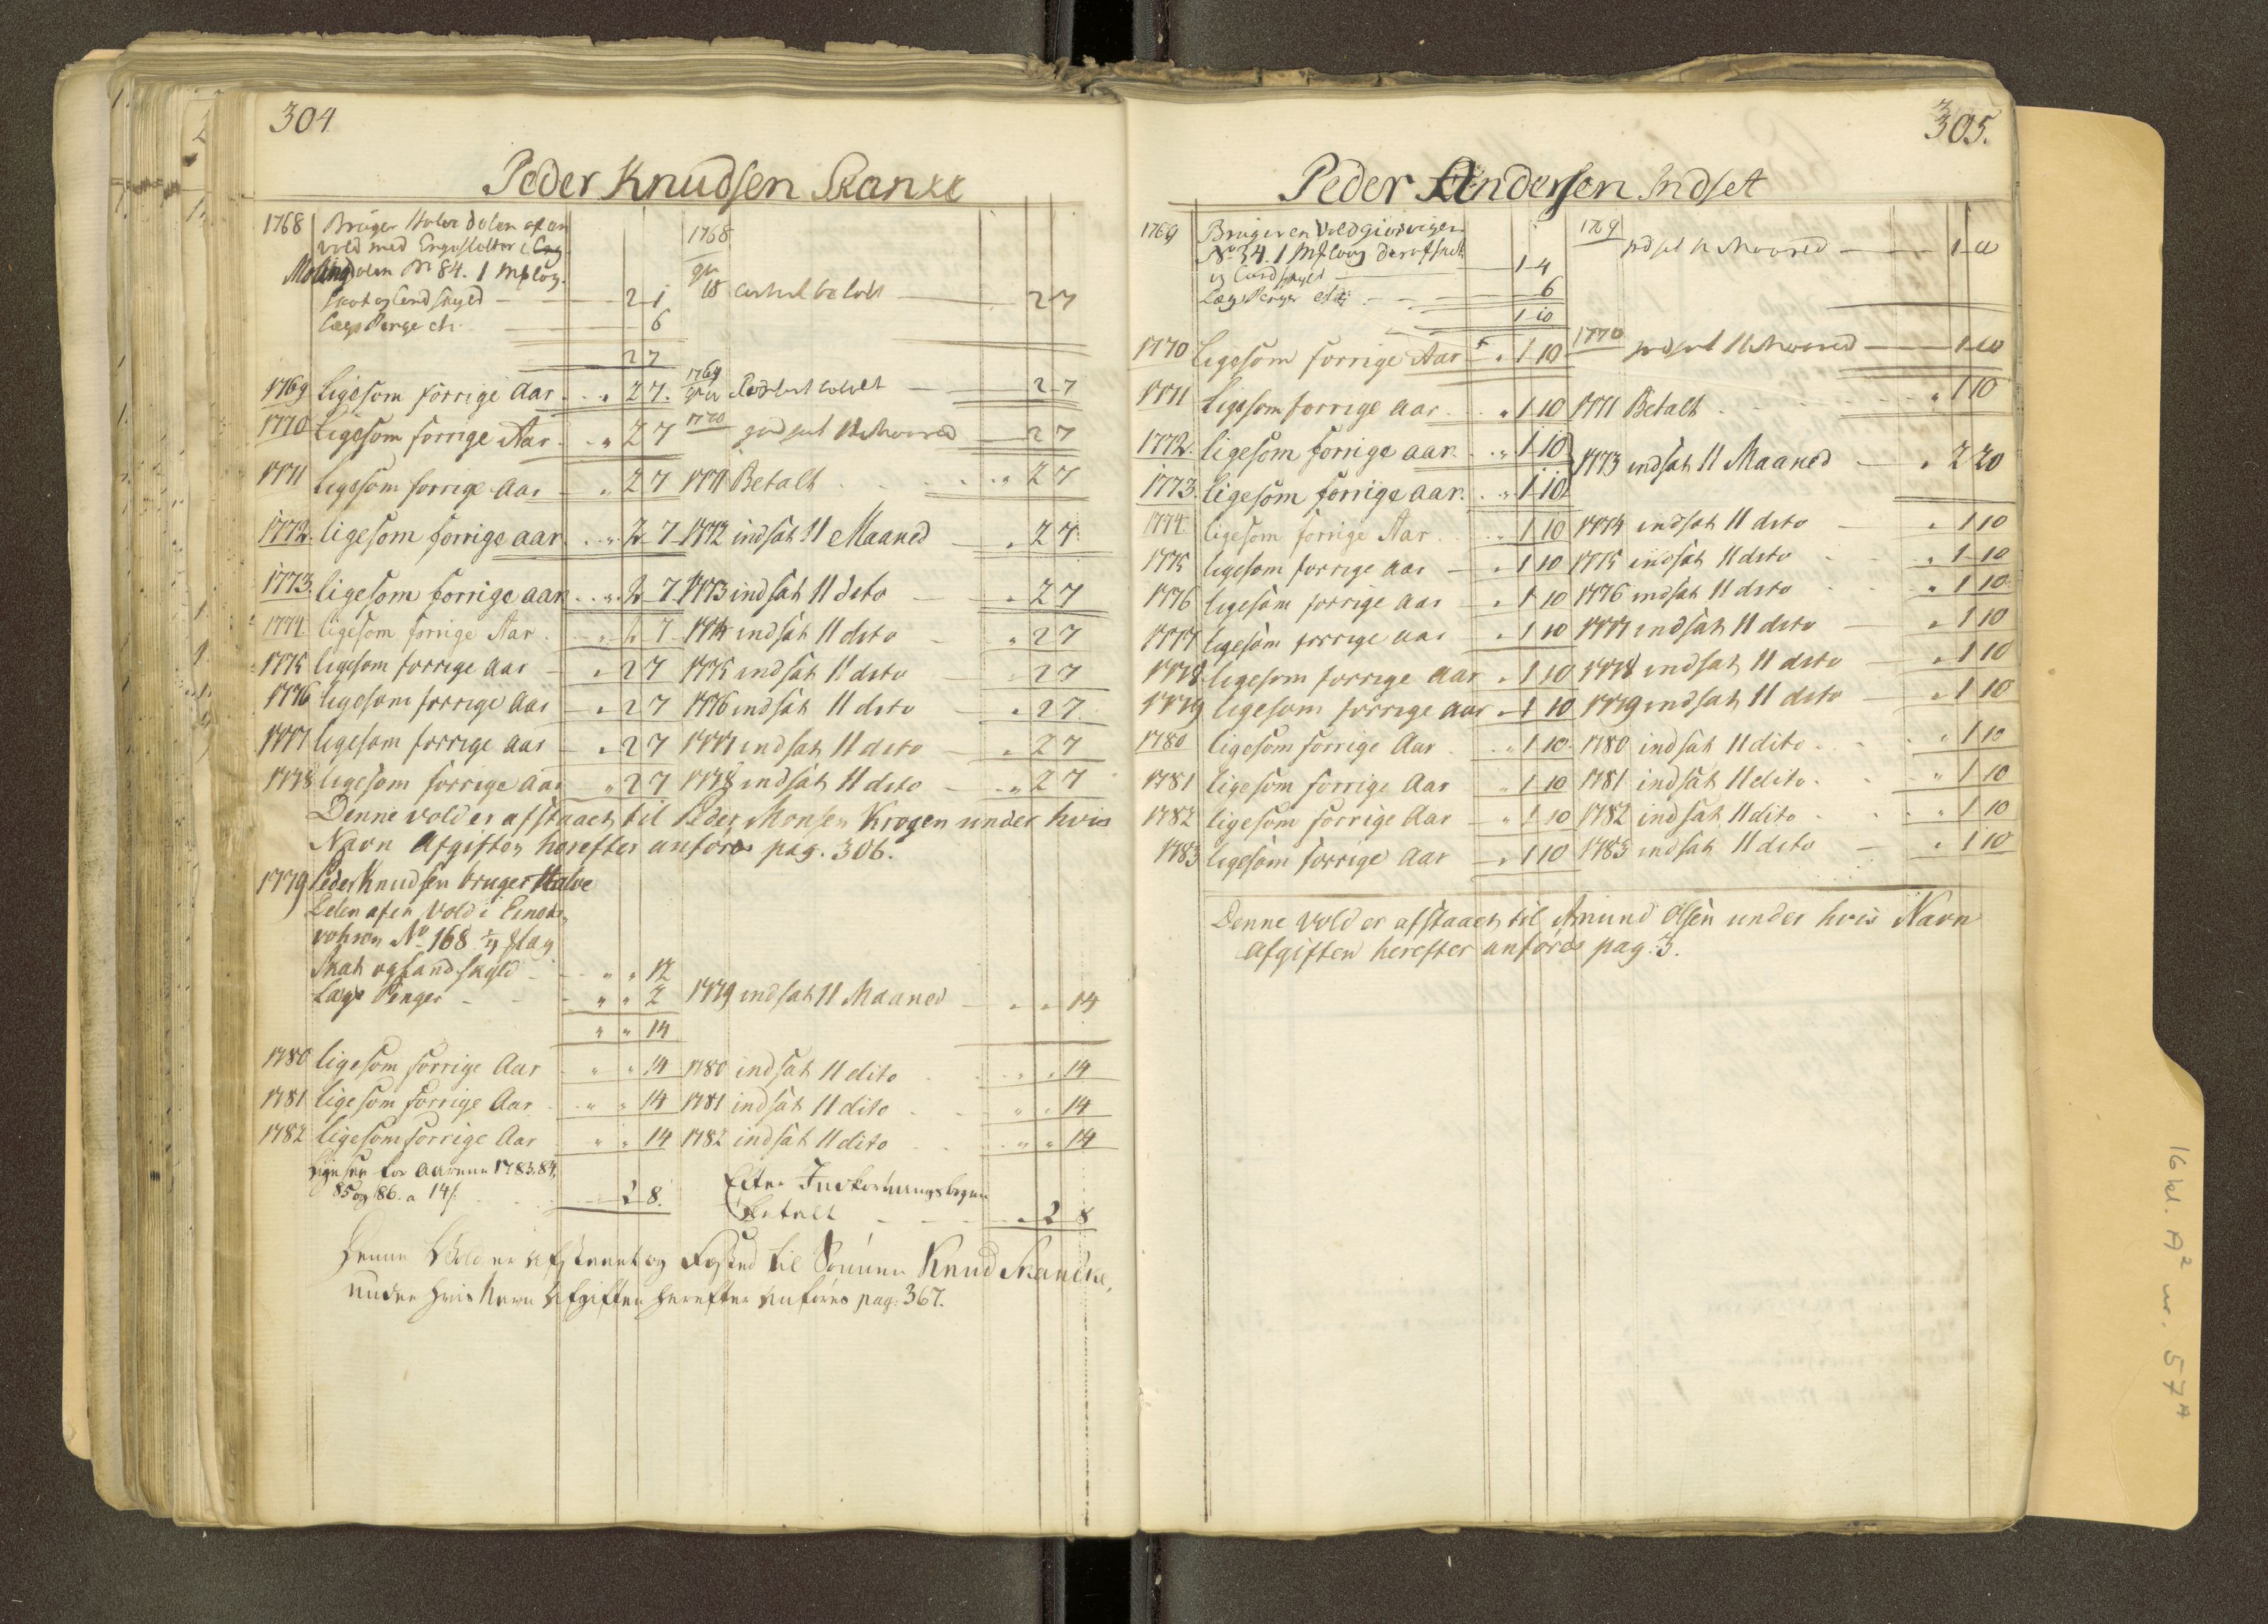 304
Peder Knudsen Skanke
1768 Bruger Halve delen af en
vold med Engesletter i
Molingdalen No 84. 1 Mk lav.
Skat og Landskyld - 2 1
Lægs Penge - 6
2 7
1768
betalt - 2 7
1769 ligesom forrige Aar . . " 2 7. 1769 - 2 7
1770 ligesom forrige Aar . . " 2 7 1770 11 Maaned - 2 7
1771 ligesom forrige Aar - " 2 7 1771 Betalt . . . . " 2 7
1772. ligesom forrige aar . . " 2 7 1772 indsat 11 Maaned - " 2 7
1773. ligesom forrige aar . . " 2 7 1773 indsat 11 dito - " 2 7
1774. ligesom forrige Aar . . " 2 7 1774 indsat 11 dito - " 2 7
1775 ligesom forrige Aar - " 2 7 1775 indsat 11 dito - " 2 7
1776 ligesom forrige Aar - " 2 7 1776 indsat 11 dito - " 2 7
1777 ligesom forrige Aar - " 2 7 1777 indsat 11 dito - " 2 7
1778 ligesom forrige Aar " 2 7 1778 indsat 11 dito - " 2 7
Denne vold er afstaaet til Peder Monsen Krogen under hvis
Navn Afgiften herefter anføres pag. 306.
1779 Peder Knudsen bruger Halve
Delen af en Vold i
No 168
Skat og Landskyld - " " 12
Lægs Penger - " " 2 1779 indsat 11 Maaned - " " 14
" " 14
1780 ligesom forrige Aar " " 14 1780 indsat 11 dito . . " " 14
1781 ligesom forrige Aar . " " 14 1781 indsat 11 dito . . " " 14
1782 ligesom forrige Aar . " " 14 1782 indsat 11 dito . . " " 14
Ligesaa for Aarene 1783, 84,
85 og 86. a 14 s. . . 2 8. Efter
Betalt - - - " 2 8
Denne Vold er afstaaet og til Sønnen Knud Skancke,
under hvis Navn Afgiften herefter anføres pag: 367.
305.
Peder Andersen Indset
1769 Bruger en Vold
No 34. 1 Mk lav deraf skat
og Landskyld - 1 4
Lægs Penger - 6
1 10
1769
indsat 11 Maaned - 1 10
1770 ligesom forrige Aar " 1 10 1770 indsat 11 Maaned - 1 10
1771 ligesom forrige Aar . . " 1 10 1771 Betalt . . . . " 1 10
1772. ligesom forrige aar . . " 1 10
1773. ligesom forrige aar . . " 1 10 1773 indsat 11 Maaned - " 2 20
1774. ligesom forrige Aar . . " 1 10 1774 indsat 11 dito - " 1 10
1775 ligesom forrige Aar - " 1 10 1775 indsat 11 dito - " 1 10
1776 ligesom forrige Aar - " 1 10 1776 indsat 11 dito . . " 1 10
1777 ligesom forrige Aar - " 1 10 1777 indsat 11 dito - " 1 10
1778 ligesom forrige Aar " 1 10 1778 indsat 11 dito - " 1 10
1779 ligesom forrige Aar " 1 10 1779 indsat 11 dito - " 1 10
1780 ligesom forrige Aar . . " 1 10. 1780 indsat 11 dito . . " 1 10
1781 ligesom forrige Aar " 1 10 1781 indsat 11 dito . . " 1 10
1782 ligesom forrige Aar - " 1 10 1782 indsat 11 dito . . " 1 10
1783 ligesom forrige Aar - " 1 10 1783 indsat 11 dito - " 1 10
Denne Vold er afstaaet til Amund Olsen under hvis Navn
Afgiften herefter anføres pag: 3.
16 kl. A² nr. 57 A